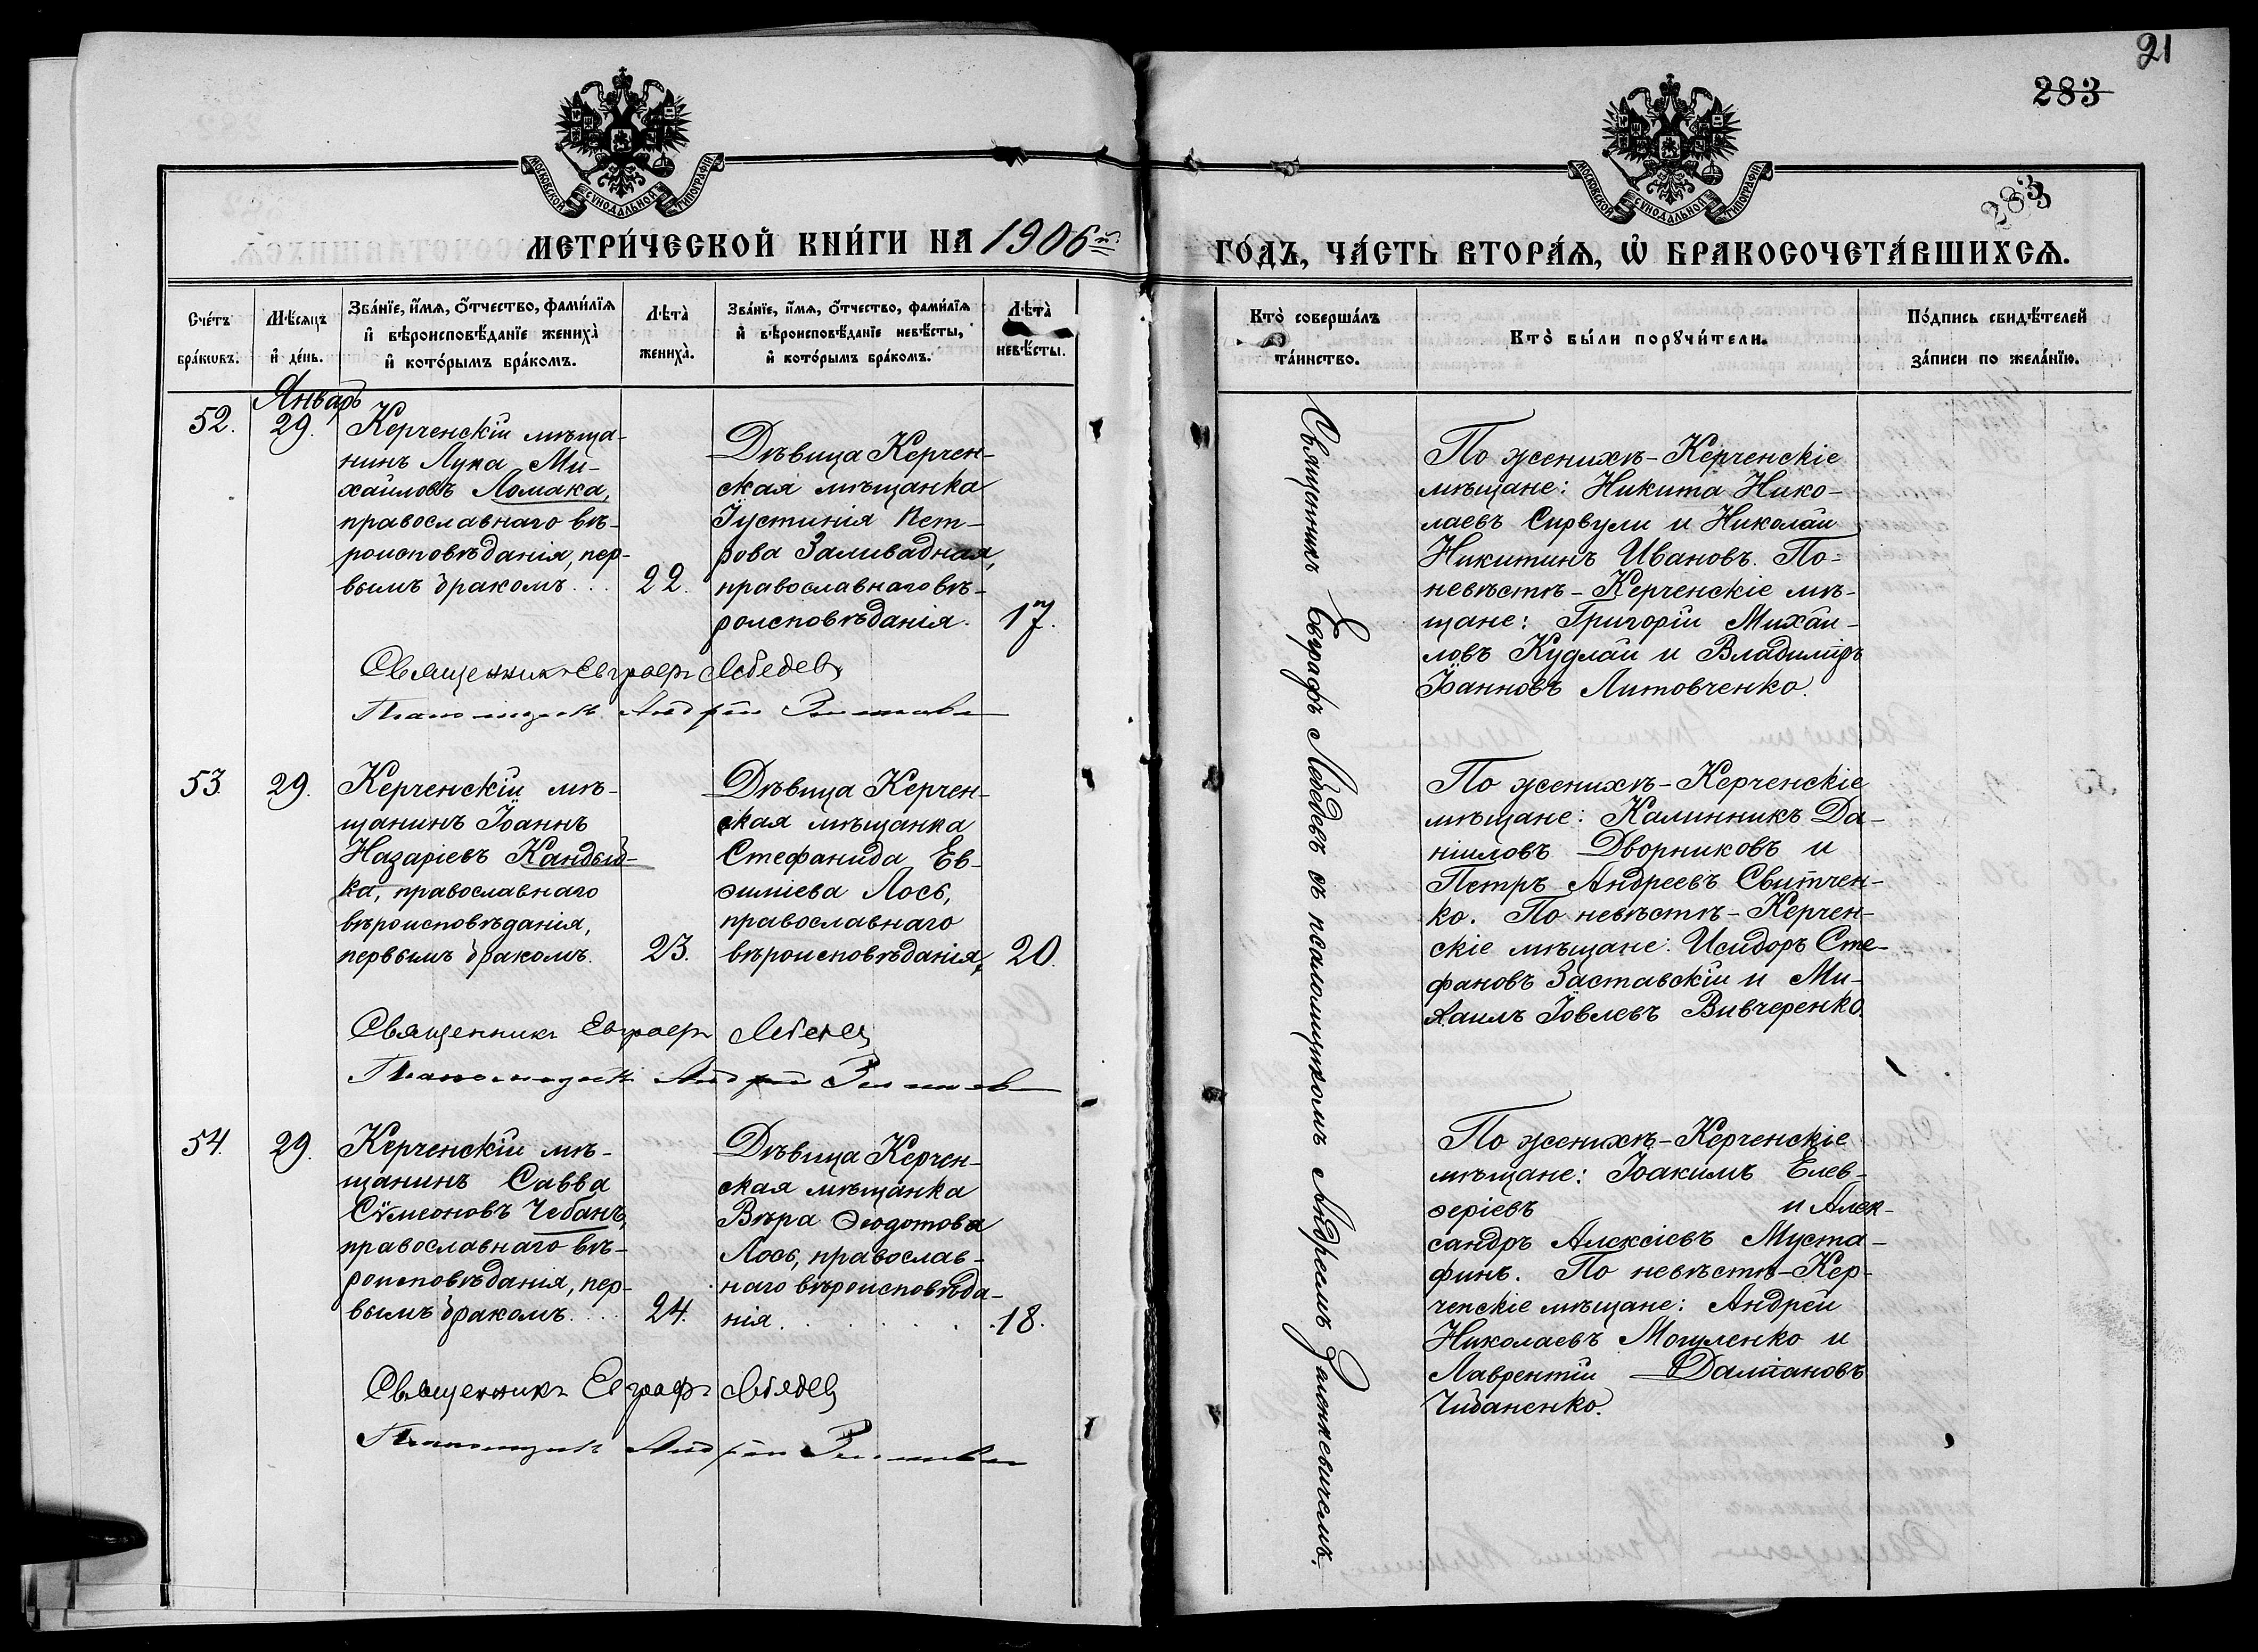 21
283
283
МОСКОВСКОЙ СѴНОДАЛЬНОЙ ТИПОГРАФІИ
МОСКОВСКОЙ СѴНОДАЛЬНОЙ ТИПОГРАФІИ
МЕТРИ́ЧЕСКОЙ КНИ́ГИ НА 1906й
ГО́ДЪ, ЧА́СТЬ ВТОРА́Ѧ, Ѽ БРАКОСОЧЕТА́ВШИХСѦ.
Сче́тъ бра́кѡвъ.
Мѣ́сяцъ и҆ де́нь.
Зва́нїе, и҆́мѧ, ѻ҆́тчество, фами́лїѧ
и҆ вѣроисповѣ́данїе жениха̀
и҆ кото́рымъ бра́комъ.
Лѣта̀ жениха̀.
Зва́нїе, и҆́мѧ, ѻ҆́тчество, фами́лїѧ
и҆ вѣроисповѣ́данїе невѣ́сты,
и҆ кото́рымъ бра́комъ.
Лѣта̀ невѣ́сты.
Кто̀ соверша́лъ та́инство.
Кто̀ бы́ли порꙋчи́тели.
По́дпись свидѣ́телей
за́писи по жела́нїю.
Январь
52.
29.
Керченскій мѣща-
нинъ Лука Ми-
хайловъ Ломака,
православнаго вѣ-
роисповѣданія, пер-
вымъ бракомъ...
22.
Дѣвица Керчен-
ская мѣщанка
Іустинія Пет-
рова Заливадная,
православнаго вѣ-
роисповѣданія.
17.
Священникъ Евграфъ Лебедевъ
Псаломщикъ Андрей
По женихѣ - Керченскіе
мѣщане: Никита Нико-
лаевъ Сирвули и Николай
Никитинъ Ивановъ. По
невѣстѣ - Керченскіе мѣ-
щане: Григорій Михай-
ловъ Кудлай и Владиміръ
Іоанновъ Литовченко.
Священникъ Евграфъ Лебедевъ съ псаломщикомъ Андреемъ Зиенкевичемъ.
53.
29.
Керченскій мѣ-
щанинъ Іоаннъ
Назаріевъ Кандый-
ка, православнаго
вѣроисповѣданія,
первымъ бракомъ.
23.
Дѣвица Керчен-
ская мѣщанка
Стефанида Ев-
ѳиміева Лось,
православнаго
вѣроисповѣданія,
20.
Священникъ Евграфъ Лебедевъ
Псаломщикъ Андрей
По женихѣ - Керченскіе
мѣщане: Калинникъ Да-
ніиловъ Дворниковъ и
Петръ Андреевъ Свитчен-
ко. По невѣстѣ - Керчен-
скіе мѣщане: Исидоръ Сте-
фановъ Заставскій и Ми-
хаилъ Іовлевъ Вивчеренко.
54.
29.
Керченскій мѣ-
щанинъ Савва
Сѵмеоновъ Чебанъ,
православнаго вѣ-
роисповѣданія, пер-
вымъ бракомъ....
24.
Дѣвица Керчен-
ская мѣщанка
Вѣра Ѳеодотова
Лось, православ-
наго вѣроисповѣда-
нія.......
18.
Священникъ Евграфъ Лебедевъ
Псаломщикъ Андрей
По женихѣ - Керченскіе
мѣщане: Іоакимъ Елев-
ѳеріевъ и Алек-
сандръ Алексіевъ Муста-
финъ. По невѣстѣ - Кер-
ченскіе мѣщане: Андрей
Николаевъ Могуленко и
Лаврентій Даміановъ
Чибаненко.